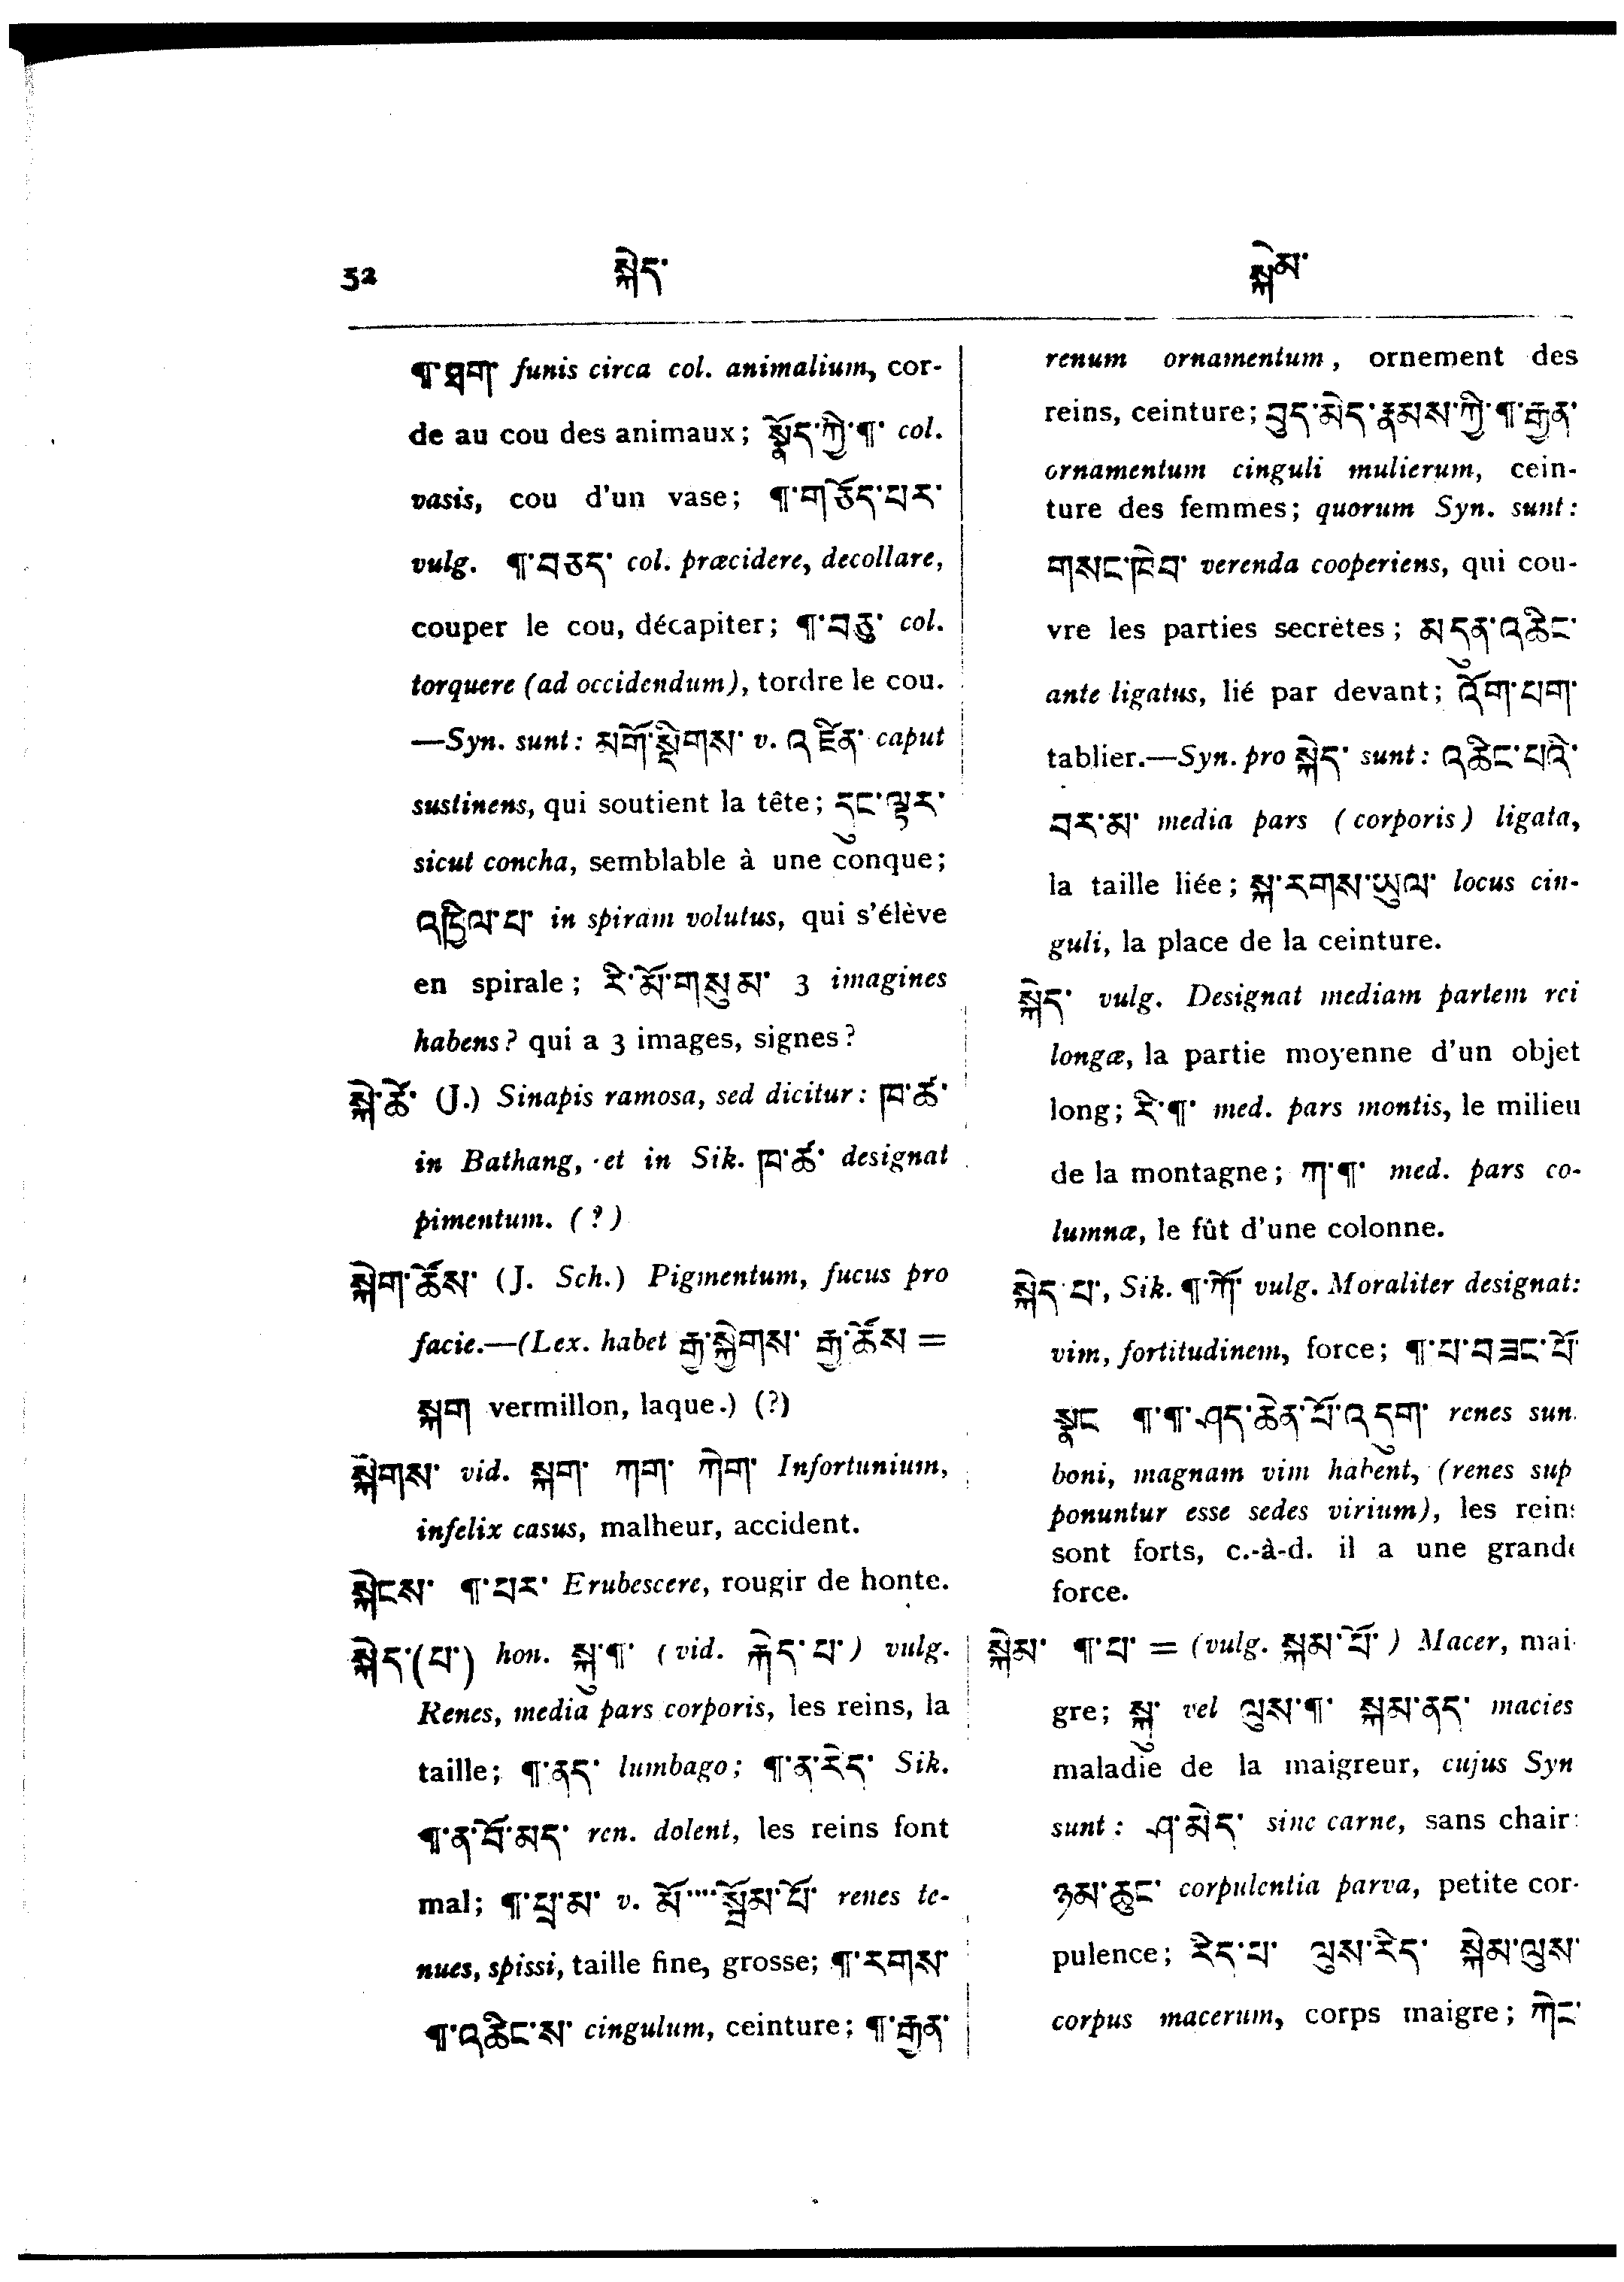 52 སྐེད་ སྐེམ་
¶་ཐག་ funis circa col. animalium, cor-
de au cou des animaux; སྣོད་ཀྱི་¶་ col.
vasis, cou d'un vase; ¶་གཅོད་པར་
vulg. ¶་བཅད་ col. præcidere, decollare,
couper le cou, décapiter; ¶་བཅུ་ col.
torquere (ad occidendum), tordre le cou.
—Syn. sunt: མགོ་སྡིགས་ v. འཛིན་ caput
sustinens, qui soutient la tête; དུང་ལྟར་
sicut concha, semblable à une conque;
འཁྱིལ་པ་ in spiram volutus, qui s'élève
en spirale; རི་མོ་གསུམ་ 3 imagines
habens? qui a 3 images, signes?
སྐེ་ཚེ་ (J.) Sinapis ramosa, sed dicitur: ཁ་ཚ་
in Bathang, et in Sik. ཁ་ཚ་ designat
pimentum. (?)
སྐེག་ཚོས་ (J. Sch.) Pigmentum, fucus pro
facie.—(Lex. habet རྒྱ་སྐྱེགས་ རྒྱ་ཚོས =
སྐག vermillon, laque.) (?)
སྐེགས་ vid. སྐག་ ཀག་ ཀེག་ Infortunium,
infelix casus, malheur, accident.
སྐེངས་ ¶་པར་ Erubescere, rougir de honte.
སྐེད་(པ་) hon. སྐུ་¶་ (vid. རྐེད་པ་) vulg.
Renes, media pars corporis, les reins, la
taille; ¶་ནད་ lumbago; ¶་ན་རེད་ Sik.
¶་ན་བོ་མད་ ren. dolent, les reins font
mal; ¶་ཕྲ་མ་ v. མོ་····སྦོམ་པོ་ renes te-
nues, spissi, taille fine, grosse; ¶་རགས་
¶་འཆིང་ས་ cingulum, ceinture; ¶་རྒྱན་
renum ornamentum, ornement des
reins, ceinture; བུད་མེད་རྣམས་ཀྱི་¶་རྒྱན་
ornamentum cinguli mulierum, cein-
ture des femmes; quorum Syn. sunt:
གསང་ཁེབ་ verenda cooperiens, qui cou-
vre les parties secrètes; མདུན་འཆིང་
ante ligatus, lié par devant; འོག་པག་
tablier.—Syn. pro སྐེད་ sunt: འཆིང་པའི་
བར་མ་ media pars (corporis) ligata,
la taille liée; སྐ་རགས་ཡུལ་ locus cin-
guli, la place de la ceinture.
སྐེད་ vulg. Designat mediam partem rei
longæ, la partie moyenne d'un objet
long; རི་¶་ med. pars montis, le milieu
de la montagne; ཀ་¶་ med. pars co-
lumnæ, le fût d'une colonne.
སྐེད་པ་, Sik. ¶་ཀོ་ vulg. Moraliter designat:
vim, fortitudinem, force; ¶་པ་བཟང་པོ་
སྣང ¶་¶་ཤད་ཆེན་པོ་འདུག་ renes sun
boni, magnam vim habent, (renes sup
ponuntur esse sedes virium), les reins
sont forts, c.-à-d. il a une grande
force.
སྐེམ་ ¶་པ་ = (vulg. སྐམ་པོ་) Macer, mai
gre; སྐུ་ vel ལུས་¶་ སྐམ་ནད་ macies
maladie de la maigreur, cujus Syn
sunt: ཤ་མེད་ sine carne, sans chair:
ཉམ་ཆུང་ corpulentia parva, petite cor-
pulence; རིད་པ་ ལུས་རིད་ སྐེམ་ལུས་
corpus macerum, corps maigre; ཀེང་